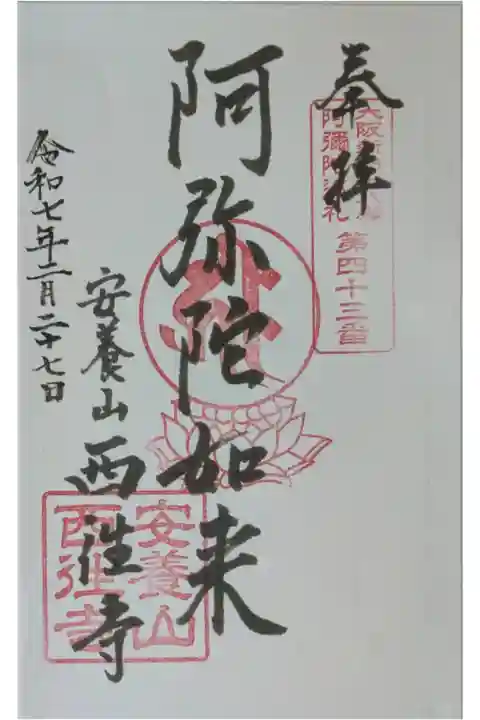 奉拝
大阪新
阿彌陀巡礼
第四十三番
阿弥陀如来
安養山西往寺
令和七年二月二十七日
安養山
西往寺